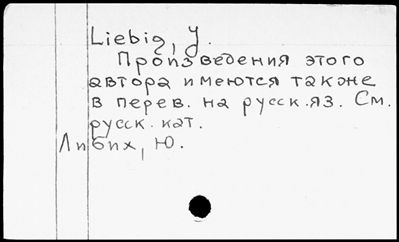 Liebig, J.
Произведения этого
автора имеются также
в перев. на русск. яз. См.
русск. кат.
Либих, Ю.